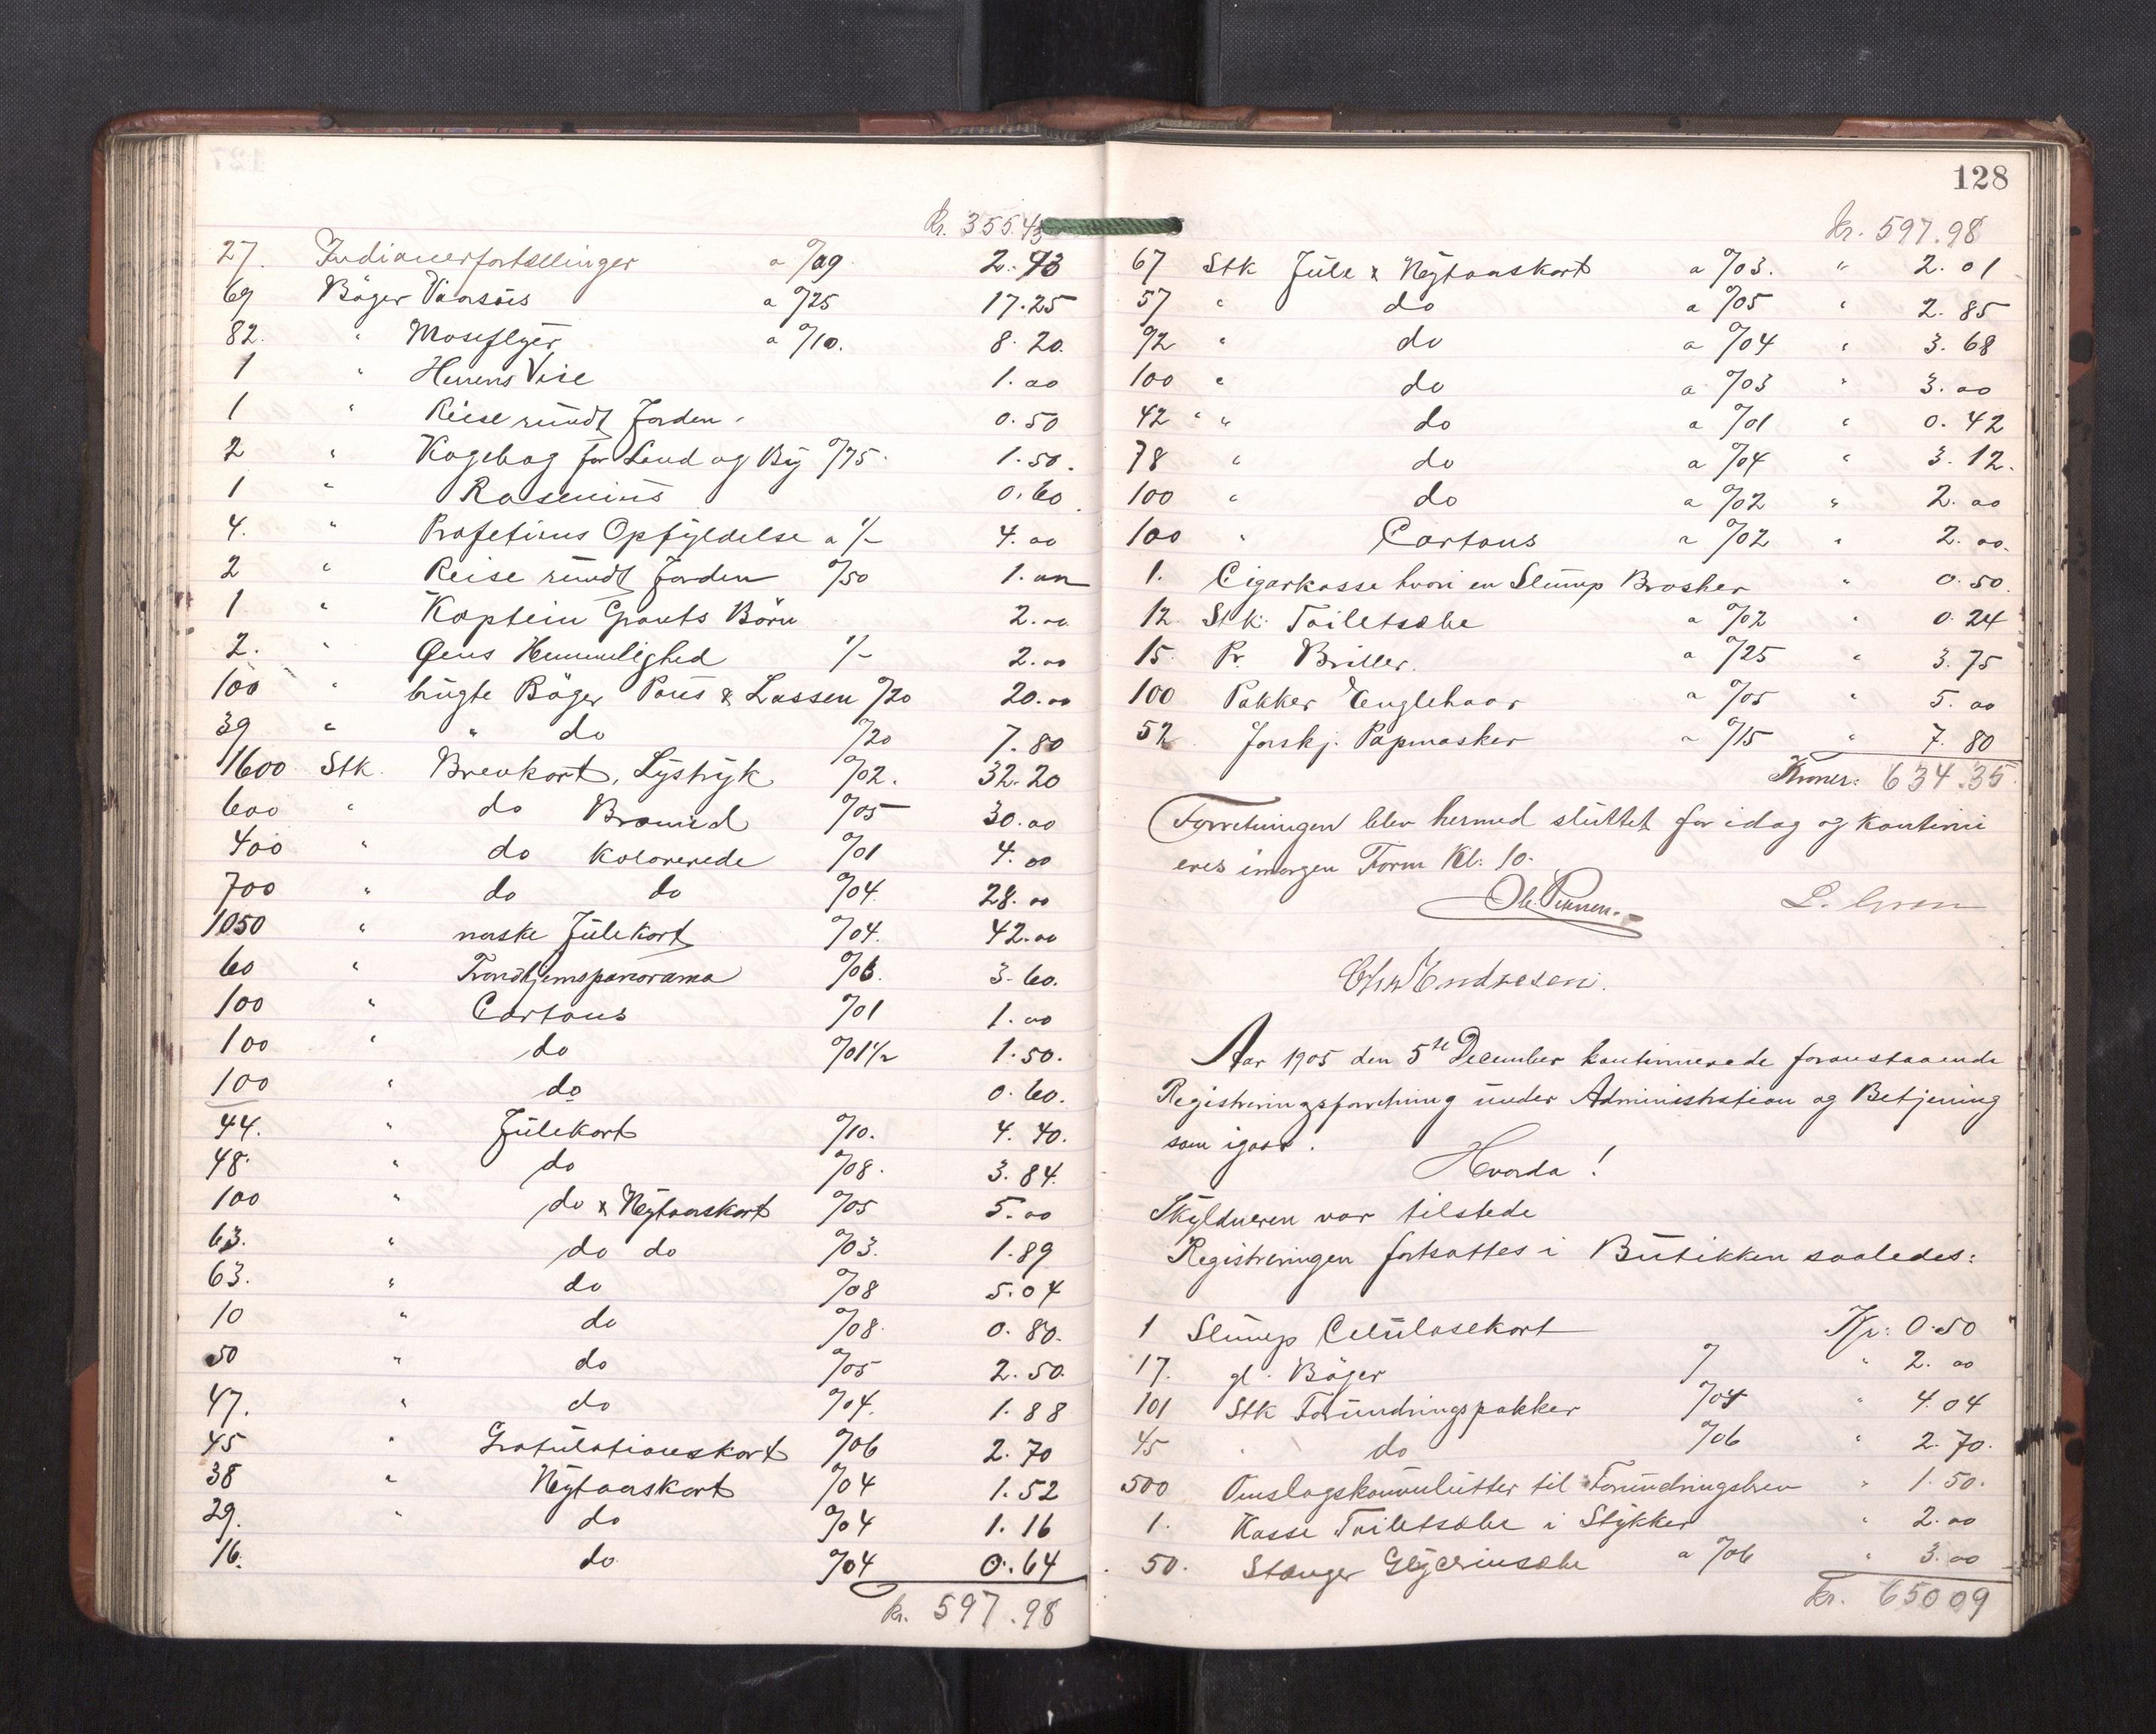 Kr. 355.43
27. Indianerfortællinger a %09 2.43
69 Bøger Vaarsøs a %25 17.25
82. " Moseflyer a %10. 8.20.
1 " Herrens Vise 1.00
1 " Reise rundt Jorden 0.50
2 " Kogebog for Land og By %75 1.50.
1 " Rosenius 0.60
4. " Profetiens Opfyldelse a 1/- 4.00
2 " Reise rundt Jorden %50 1.00
1 " Kaptein Grants Børn 2.00
2. " Hemmelighed 1/- 2.00
100 " brugte Bøger Pous & Lassen %20 20.00
39 " " do %20 7.80
1600 Stk. Brevkort, Lystryk %02. 32.20
600 " do Bromid %05 30.00
400 " do kolorerede %01 4.00
700 " do do %04 28.00
1050 " norske Julekort %04. 42.00
60 " Trondhjemspanorama %06. 3.60.
100 " Cartons %01 1.00
100 " do %01½ 1.50.
100 " do 0.60.
44. " Julekort %10. 4.40.
48. " do %08. 3.84.
100 " do & Nytaarskort %05 5.00
63. " do do %03. 1.89
63. " do %08 5.04
10 " do %08. 0.80.
50 " do %05 2.50.
47. " do %04. 1.88
45 " Gratulationskort %06 2.70
38 " Nytaarskort %04 1.52
29. " do %04 1.16
16. " do %04 0.64
kr. 597.98
128
kr. 597.98
67 Stk Jule & Nytaarskort a %03. " 2.01
57 " do a %05 " 2.85
92 " do a %04 " 3.68
100 " do a %03 " 3.00
42 " " do a %01 " 0.42
78 " do a %04 " 3.12.
100 " do a %02 " 2.00
100 " Cartons a %02 " 2.00.
1. Cigarkasse hvori en Slump Brosher " 0.50.
12. Stk. Toiletsæbe a %02 " 0.24
15. Pr. Briller. a %25 " 3.75
100 Pakker Englehaar a %05 " 5.00
52 forskj. Papmasker a %15 " 7.80
Kroner: 634.35
Forretningen blev hermed sluttet for idag og kontinu
eres imorgen Form Kl. 10.
Chr Endresen.
Aar 1905 den 5te December kontinuerede foranstaaende
Registreringsforretning under Administration og Betjening
som igaar.
Hvorda!
Skyldneren var tilstede
Registreringen fortsattes i Butikken saaledes:
1 Slump Celulosekort Kr: 0.50
17. gl. Bøger " 2.00
101 Stk Forundringspakker %04 " 4.04
45 " do %06 " 2.70.
500 Omslagskonvolutter til Forundringsbrev " 1.50.
1. Kasse Toiletsæbe i Stykker " 2.00
50. Stænger Glycerinsæbe a %06 " 3.00
kr. 650 09